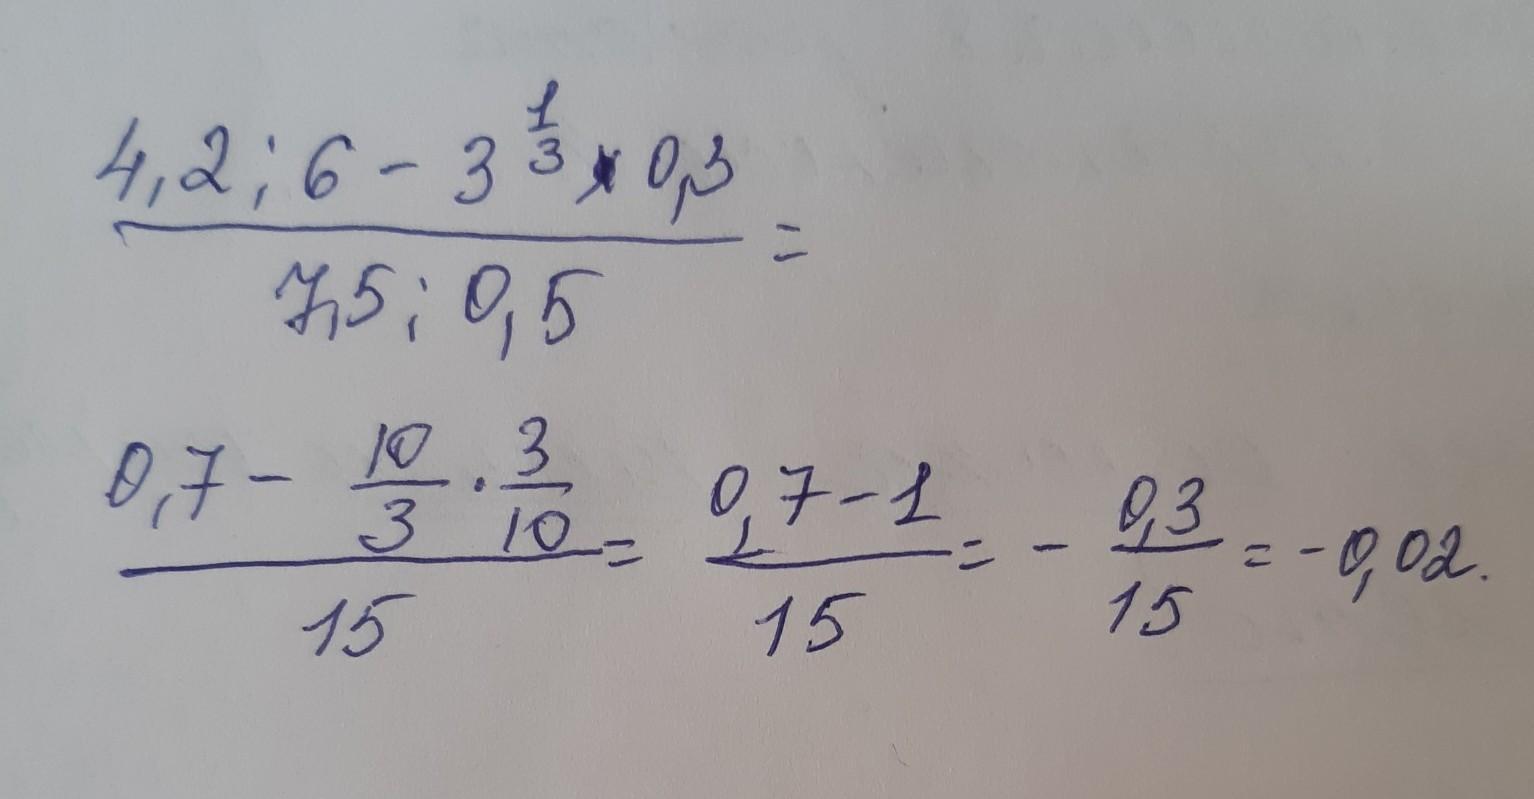 4,2 : 6 - 3 1/3 × 0,3
7,5 : 0,5 =
0,7 - 10/3 · 3/10 / 15 = 0,7 - 1 / 15 = - 0,3/15 = -0,02.